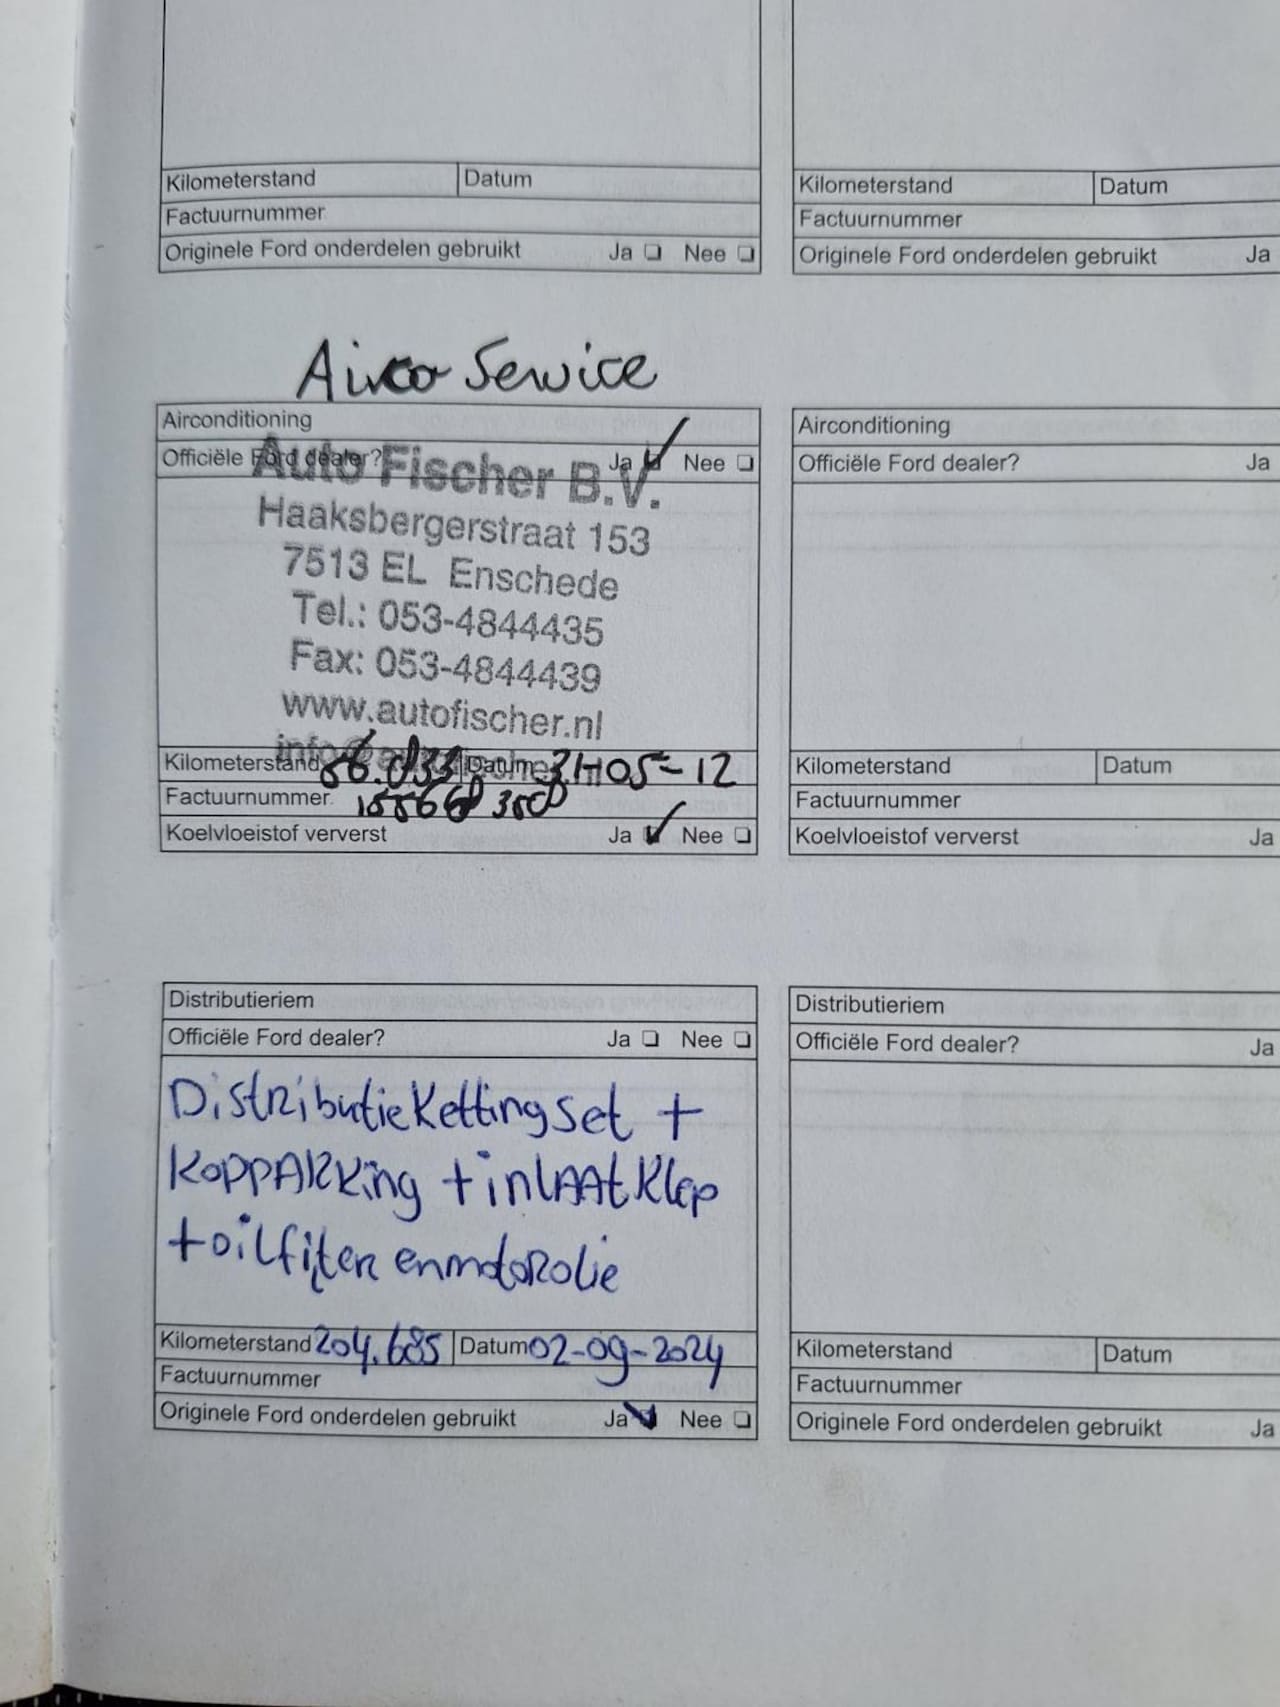 Kilometerstand Datum
Factuurnummer
Originele Ford onderdelen gebruikt Ja Nee
Kilometerstand Datum
Factuurnummer
Originele Ford onderdelen gebruikt Ja
Airco Service
Airconditioning
Officiële Ford dealer? Ja Nee
Auto Fischer B.V.
Haaksbergerstraat 153
7513 EL Enschede
Tel.: 053-4844435
Fax: 053-4844439
www.autofischer.nl
Kilometerstand 56.033 Datum 31-05-12
Factuurnummer
Koelvloeistof ververst Ja Nee
Airconditioning
Officiële Ford dealer? Ja
Kilometerstand Datum
Factuurnummer
Koelvloeistof ververst Ja
Distributieriem
Officiële Ford dealer? Ja Nee
Distributieketting set +
koppakking + inlaatklep
+ oilfilter en motorolie
Kilometerstand 204.685 Datum 02-09-2024
Factuurnummer
Originele Ford onderdelen gebruikt Ja Nee
Distributieriem
Officiële Ford dealer? Ja
Kilometerstand Datum
Factuurnummer
Originele Ford onderdelen gebruikt Ja